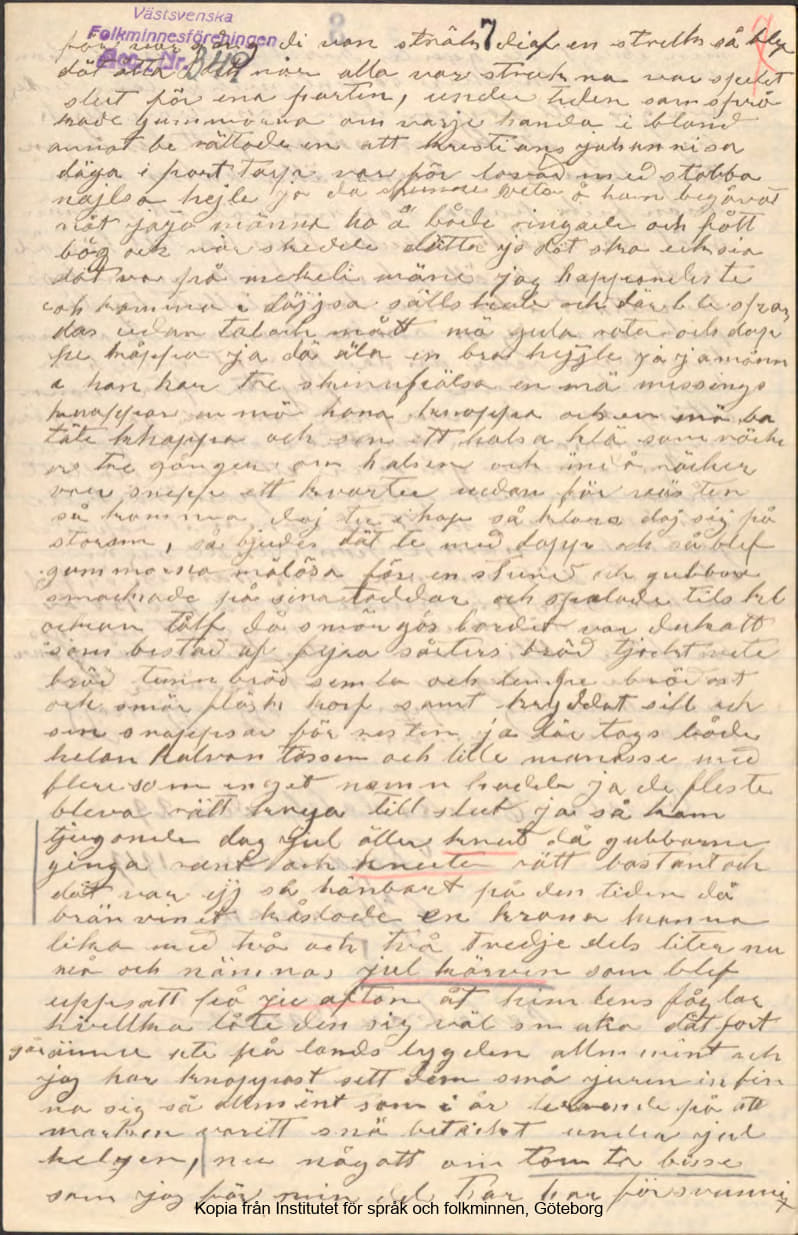 Västsvenska
Folkminnesföreningen
Acc. Nr. 349
7
di van sträk diaf en streck så blef
dät åtta och när alla var strukna var spelet
slut för ena parten, under tiden samsprå
kade gummorna om varje handa i bland
annat be rättade en att kristians johannisa
däga i port torja var för lovad med stobba
najlsa hejle ja då skunne veta å han begåvat
nåt jaja männsk ho å både ringade och fått
bög ock när skedde dätta jo dät ska eck sia
dät var på mekeli mäss jag happendeste
och komma i döjjsa sälls kade och där ble
das udan tal och mått mä gula roter och dop
pe kåppa ja dä äla en bra hejjle ja ja männ
a han har tre skinnfälsa en mä missings
knappar en mä hana knappa och en mä ba
täte khappa och sen ett halsa klä som räcke
er tre gånger om halsen och än å räcker
ven snepp ett kvarter nedan för väs ten
så komma daj te ihop så klara daj sig på
storam, så bjudes dät te med dopp och så blef
gummorna målösa för en stund och gubbar
smackade på sina toddar och spelade tils kl
ockan tålf då smörgås bordet var dukatt
som bestod af fyra sårters bröd tjockt vete
bröd tunn bröd semla och lempe bröd ost
och smör fläsk korf samt kryddat sill och
sen snappsar för resten ja där togs både
helan halvan tåssen och lille manasse med
flere som inget namn hadde ja de fleste
bleva rätt krya till slut ja så kom
tjugonde dag jul äller knut då gubbarne
ginga runt och knutade rätt bastant och
dät var ejj så hänbart på den tiden då
brän vinet kåstade en krona kanna
lika med två och två tredje dels liter nu
må och nämnas jul kärven som blef
uppsatt på jul afton åt himlens foglar
hvellka låte den sig väl smaka dät fort
går ännu ute på lands bygden allmäint och
jag har knappast sett dem små juren infin
na sig så allmänt som i år beroende på att
marken varitt snä betäckt under jul
helgen, nu någott om tomta bisse
som jag för min del tror har försvunnit
Kopia från Institutet för språk och folkminnen, Göteborg